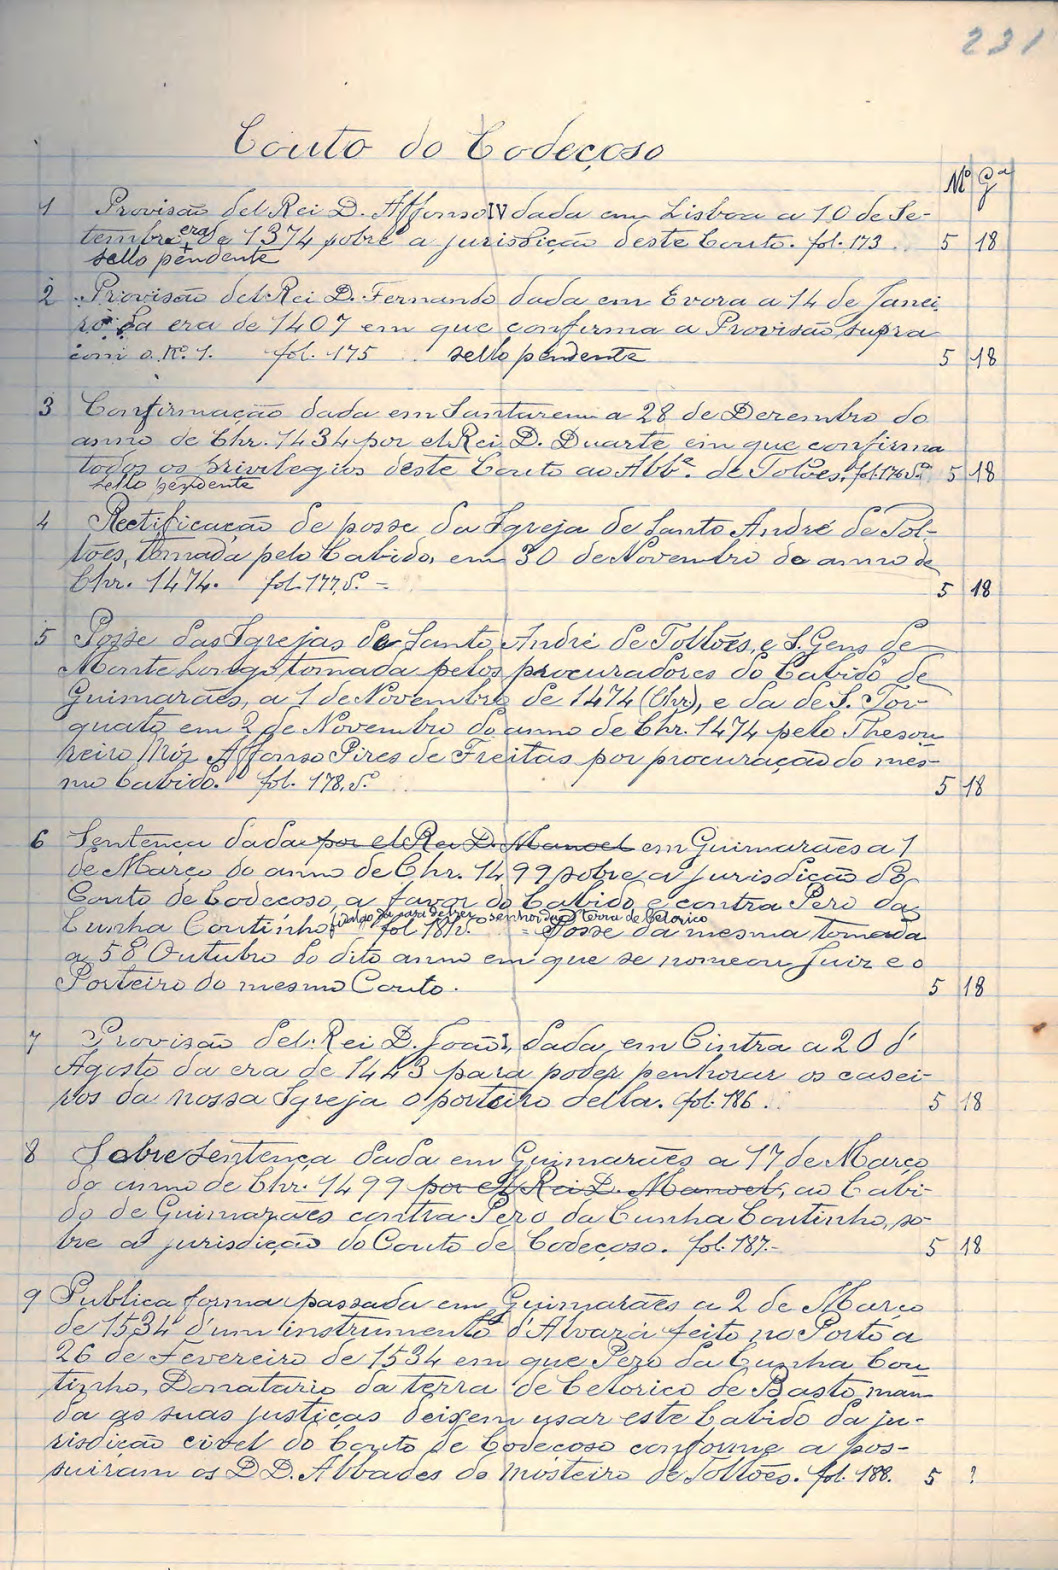 231
Couto do Codeçoso
Mº Gª
1 Provisão del Rei D. Affonso IV dada em Lisboa a 10 de Se-
tembro era de 1374 sobre a jurisdição deste Couto. fol. 173 5 18
sello pendente
2 Provisão del Rei D. Fernando dada em Evora a 14 de Janei
ro da era de 1407 em que confirma a Provisão supra
com o Nº. 1. fol. 175 sello pendente 5 18
3 Confirmação dada em Santarem a 28 de Dezembro do
anno de Chr. 1434 por el Rei D. Duarte em que confirma
todos os privilegios deste Couto ao Abbe. de Tolões. fol. 176 vº 5 18
sello pendente
4 Rectificação de posse da Igreja de Santo André de Tol-
lões, tomada pelo Cabido, em 30 de Novembro do anno de
Chr. 1474. fol. 177, vº. = 5 18
5 Posse das Igrejas de Santo André de Tollões, e S. Gens de
Monte Longo tomada pelos procuradores do Cabido de
Guimarães, a 1 de Novembro de 1474 (Chr), e da de S. Tor-
quato em 2 de Novembro do anno de Chr. 1474 pelo Thesou
reiro Mór Affonso Pires de Freitas por procuração do mes-
mo Cabido. fol. 178, vº. 5 18
6 Sentença dada por el Rei D. Manoel em Guimarães a 1
de Março do anno de Chr. 1499 sobre a jurisdição do
Couto de Codeçoso, a favor do Cabido e contra Pero da
senhor da terra de Celorico
Cunha Coutinho, fol 181 v. = Posse da mesma tomada
a 58 Outubro do dito anno em que se nomeou Juiz e o
Porteiro do mesmo Couto. 5 18
7 Provisão del Rei D. João I, dada em Cintra a 20 d'
Agosto da era de 1443 para poder penhorar os casei-
ros da nossa Igreja o porteiro della. fol. 186. 5 18
8 Sobresentença dada em Guimarães a 17 de Março
do anno de Chr. 1499 por el Rei D. Manoel, ao Cabi-
do de Guimarães contra Pero da Cunha Coutinho, so-
bre a jurisdição do Couto de Codeçoso. fol. 187.- 5 18
9 Publica forma passada em Guimarães a 2 de Março
de 1534 d'um instrumento d'Alvará feito no Porto a
26 de Fevereiro de 1534 em que Pero da Cunha Cou
tinho, Donatario da terra de Celorico de Basto man-
da as suas justiças deixem usar este Cabido da ju-
risdição civel do Couto de Codeçoso conforme a pos-
suiram os D D. Abbades do mosteiro de Tollões. fol. 188. 5 ?